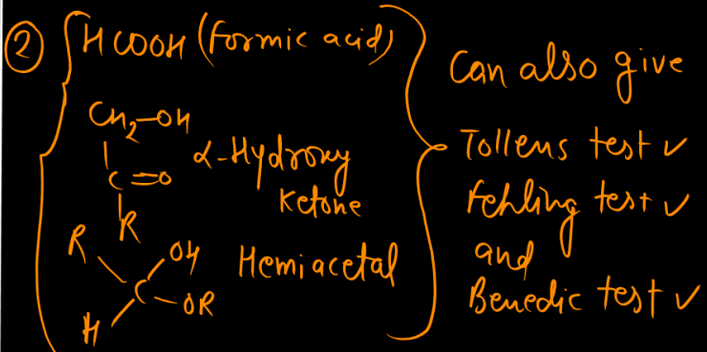 ② HCOOH (Formic acid)
CH2-OH
C=O
R
α-Hydroxy
Ketone
R OH
C-OR
H
Hemiacetal
Can also give
Tollens test ✓
Fehling test ✓
and
Benedic test ✓